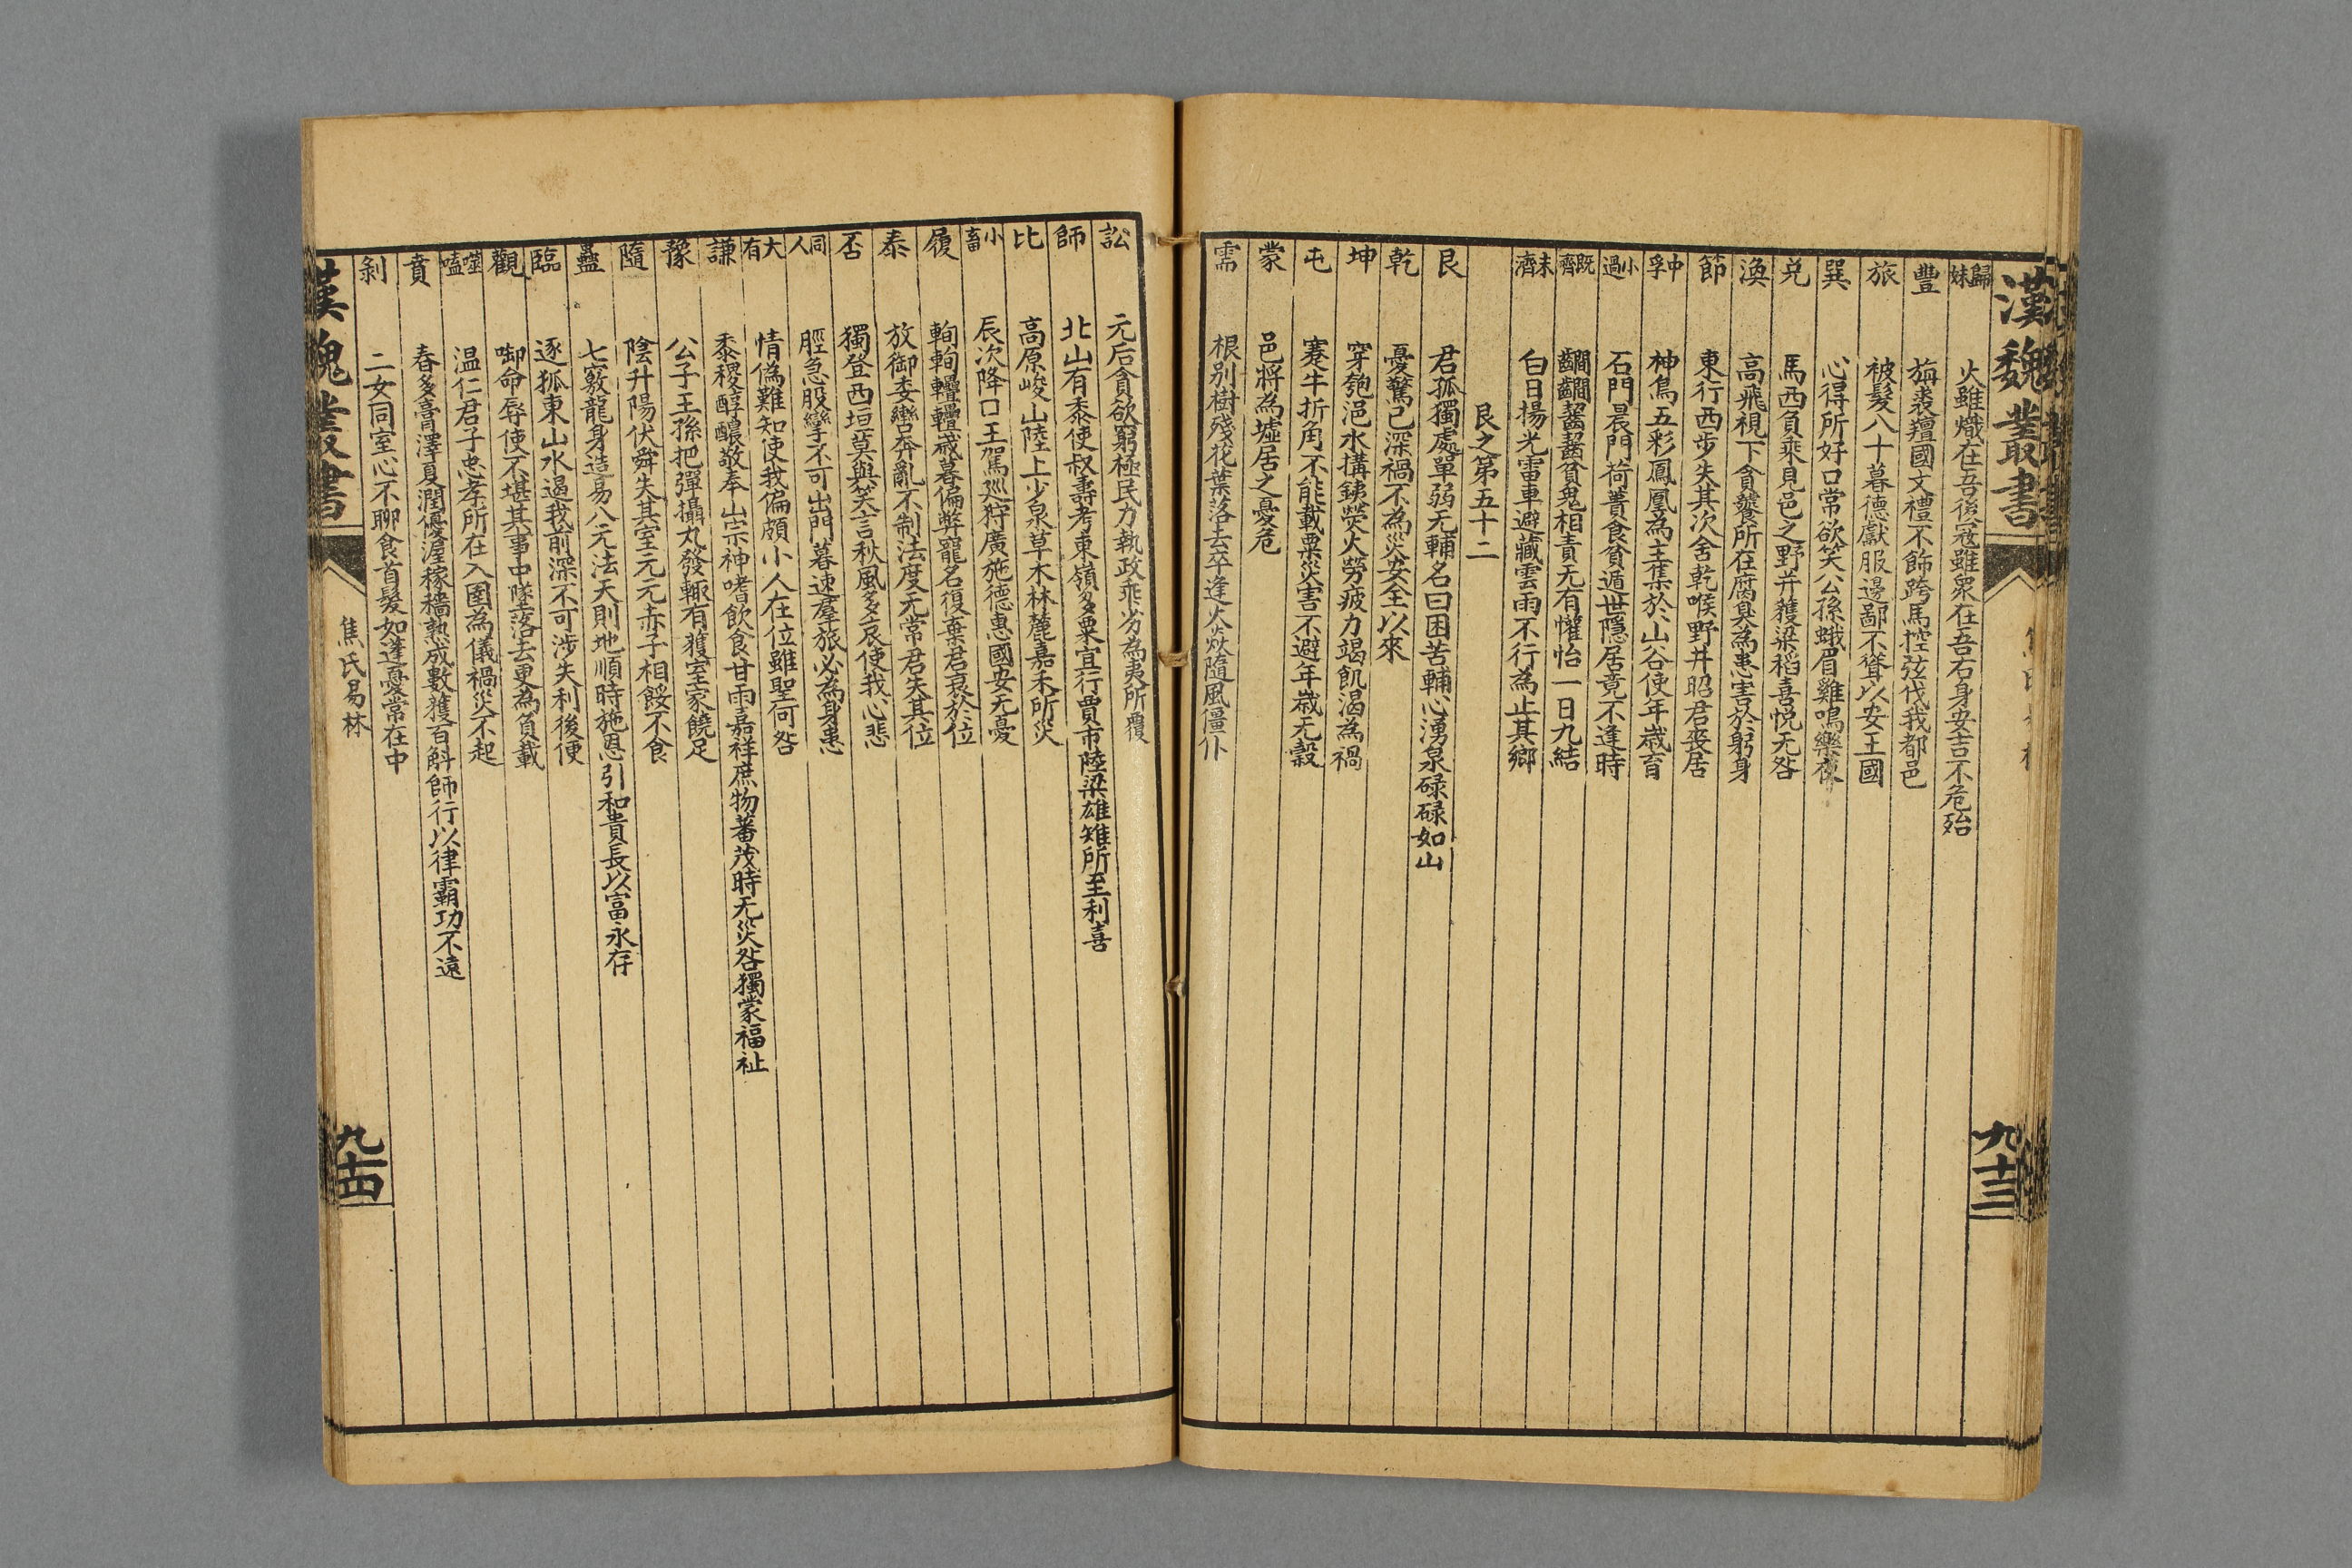 漢魏叢書
九十三
歸妹 火雖熾在吾後寇雖衆在吾右身安吉不危殆
豐 旃裘羶國文禮不飾跨馬控弦伐我都邑
旅 被髮八十暮德獻服邊鄙不聳以安王國
巽 心得所好口常欲笑公孫蛾眉雞鳴樂夜
兌 馬西負乘見邑之野并獲粱稻喜悅无咎
渙 高飛視下貪饕所在腐臭為患害於躬身
節 東行西步失其次舍乾喉野井昭君喪居
中孚 神鳥五彩鳳凰為主集於山谷使年歲育
小過 石門晨門荷蕢食貧遁世隱居竟不逢時
既濟 齺齺齧齧貧鬼相責无有懽怡一日九結
未濟 白日揚光雷車避藏雲雨不行為止其鄉
艮之第五十二
艮 君孤獨處單弱无輔名曰困苦輔心湧泉碌碌如山
乾 憂驚已深禍不為災安全以來
坤 穿匏浥水搆銕熒火勞疲力竭飢渴為禍
屯 蹇牛折角不能載粟災害不避年歲无穀
蒙 邑將為墟居之憂危
需 根刖樹殘花葉落去卒逢火焱隨風僵仆
訟 元后貪欲窮極民力執政乖劣為夷所覆
師 北山有黍使叔壽考東嶺多粟宜行賈市陸梁雄雉所至利喜
比 高原峻山陸上少泉草木林麓嘉禾所災
小畜 辰次降口王駕巡狩廣施德惠國安无憂
履 輷輷轠轠歲暮偏弊寵名復棄君衰於位
泰 放御委轡奔亂不制法度无常君失其位
否 獨登西垣莫與笑言秋風多哀使我心悲
同人 脛急股攣不可出門暮速羣旅必為身患
大有 情偽難知使我偏頗小人在位雖聖何咎
謙 黍稷醇醲敬奉山宗神嗜飲食甘雨嘉祥庶物蕃茂時无災咎獨蒙福祉
豫 公子王孫把彈攝丸發輒有獲室家饒足
隨 陰升陽伏舜失其室元元赤子相餒不食
蠱 七竅龍身造易八元法天則地順時施恩引和貴長以富永存
臨 逐狐東山水遏我前深不可涉失利後便
觀 啣命辱使不堪其事中墜落去更為負載
噬嗑 温仁君子忠孝所在入閨為儀禍災不起
賁 春多膏澤夏潤優渥稼穡熟成數獲百斛師行以律霸功不遠
剝 二女同室心不聊食首髮如蓬憂常在中
漢魏叢書
焦氏易林
九十四